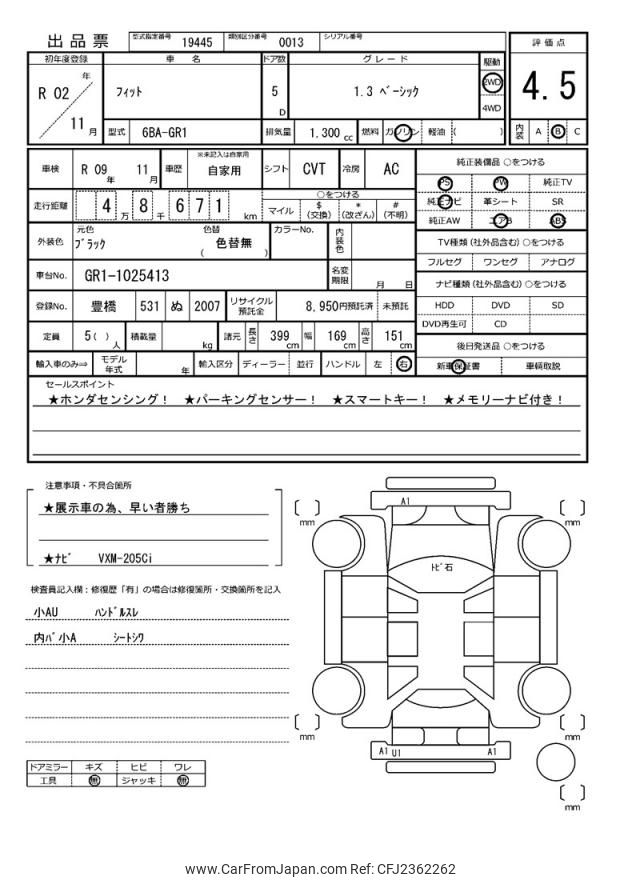 出品票 型式指定番号 19445 類別区分番号 0013 シリアル番号
評価点
4.5
内装 A B C
初年度登録 車名 ドア数 グレード 駆動
R 02 年 11 月
フィット 5 D 1.3 ﾍﾞｰｼｯｸ 2WD 4WD
型式 6BA-GR1 排気量 1,300 cc 燃料 ガソリン 軽油 ( )
車検 R 09 年 11 月 車歴 ※未記入は自家用 自家用 シフト CVT 冷房 AC
走行距離 4 万 8 千 6 7 1 km
○をつける
マイル $ (交換) * (改ざん) # (不明)
外装色 元色 ﾌﾞﾗｯｸ 色替 ( 色替無 ) カラーNo. 内装色
車台No. GR1-1025413 名変期限 月 日
登録No. 豊橋 531 ぬ 2007 リサイクル預託金 8,950円預託済 未預託
定員 5( ) 人 積載量 kg 諸元 長さ 399 cm 幅 169 cm 高さ 151 cm
輸入車のみ⇒ モデル年式 年 輸入区分 ディーラー 並行 ハンドル 左 右
純正装備品 ○をつける
PS PW 純正TV
純正ナビ 革シート SR
純正AW エアB ABS
TV種類(社外品含む)○をつける
フルセグ ワンセグ アナログ
ナビ種類(社外品含む)○をつける
HDD DVD SD
DVD再生可 CD
後日発送品 ○をつける
新車保証書 車輌取説
セールスポイント
★ホンダセンシング！ ★パーキングセンサー！ ★スマートキー！ ★メモリーナビ付き！
注意事項・不具合箇所
★展示車の為、早い者勝ち
★ﾅﾋﾞ VXM-205Ci
検査員記入欄：修復歴「有」の場合は修復箇所・交換箇所を記入
小AU ﾊﾝﾄﾞﾙｽﾚ
内ﾊﾞ小A ｼｰﾄｼﾜ
ドアミラー キズ ヒビ ワレ
工具 無 ジャッキ 無
A1
mm
mm
ﾄﾋﾞ石
mm
mm
A1 U1 A1
mm
www.CarFromJapan.com Ref: CFJ2362262